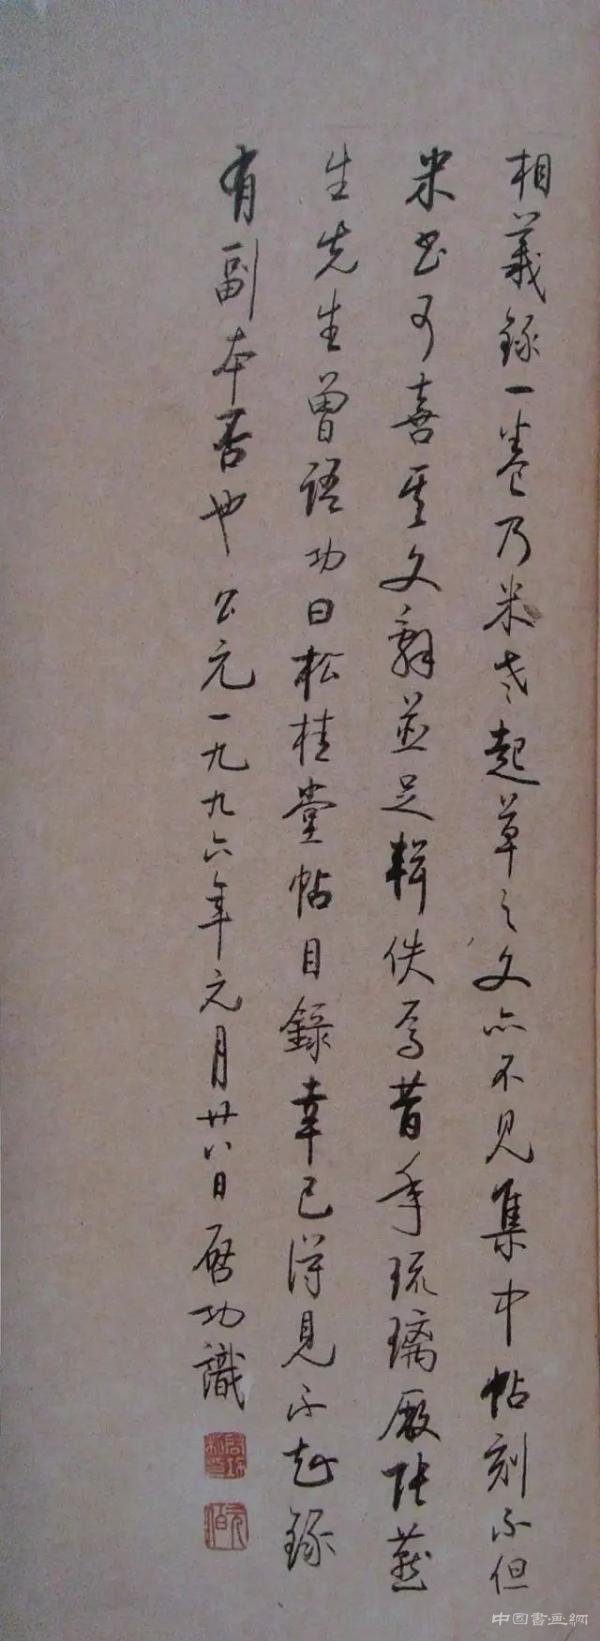 相義錄一卷乃米老起草之文亦不見集中帖刻不但
米書可喜其文辭並足輯佚焉昔年琉璃廠張燕
生先生曾語功曰松桂堂帖目錄幸已得見不知錄
有副本否也公元一九九六年元月廿八日启功識
元伯
中国書画網